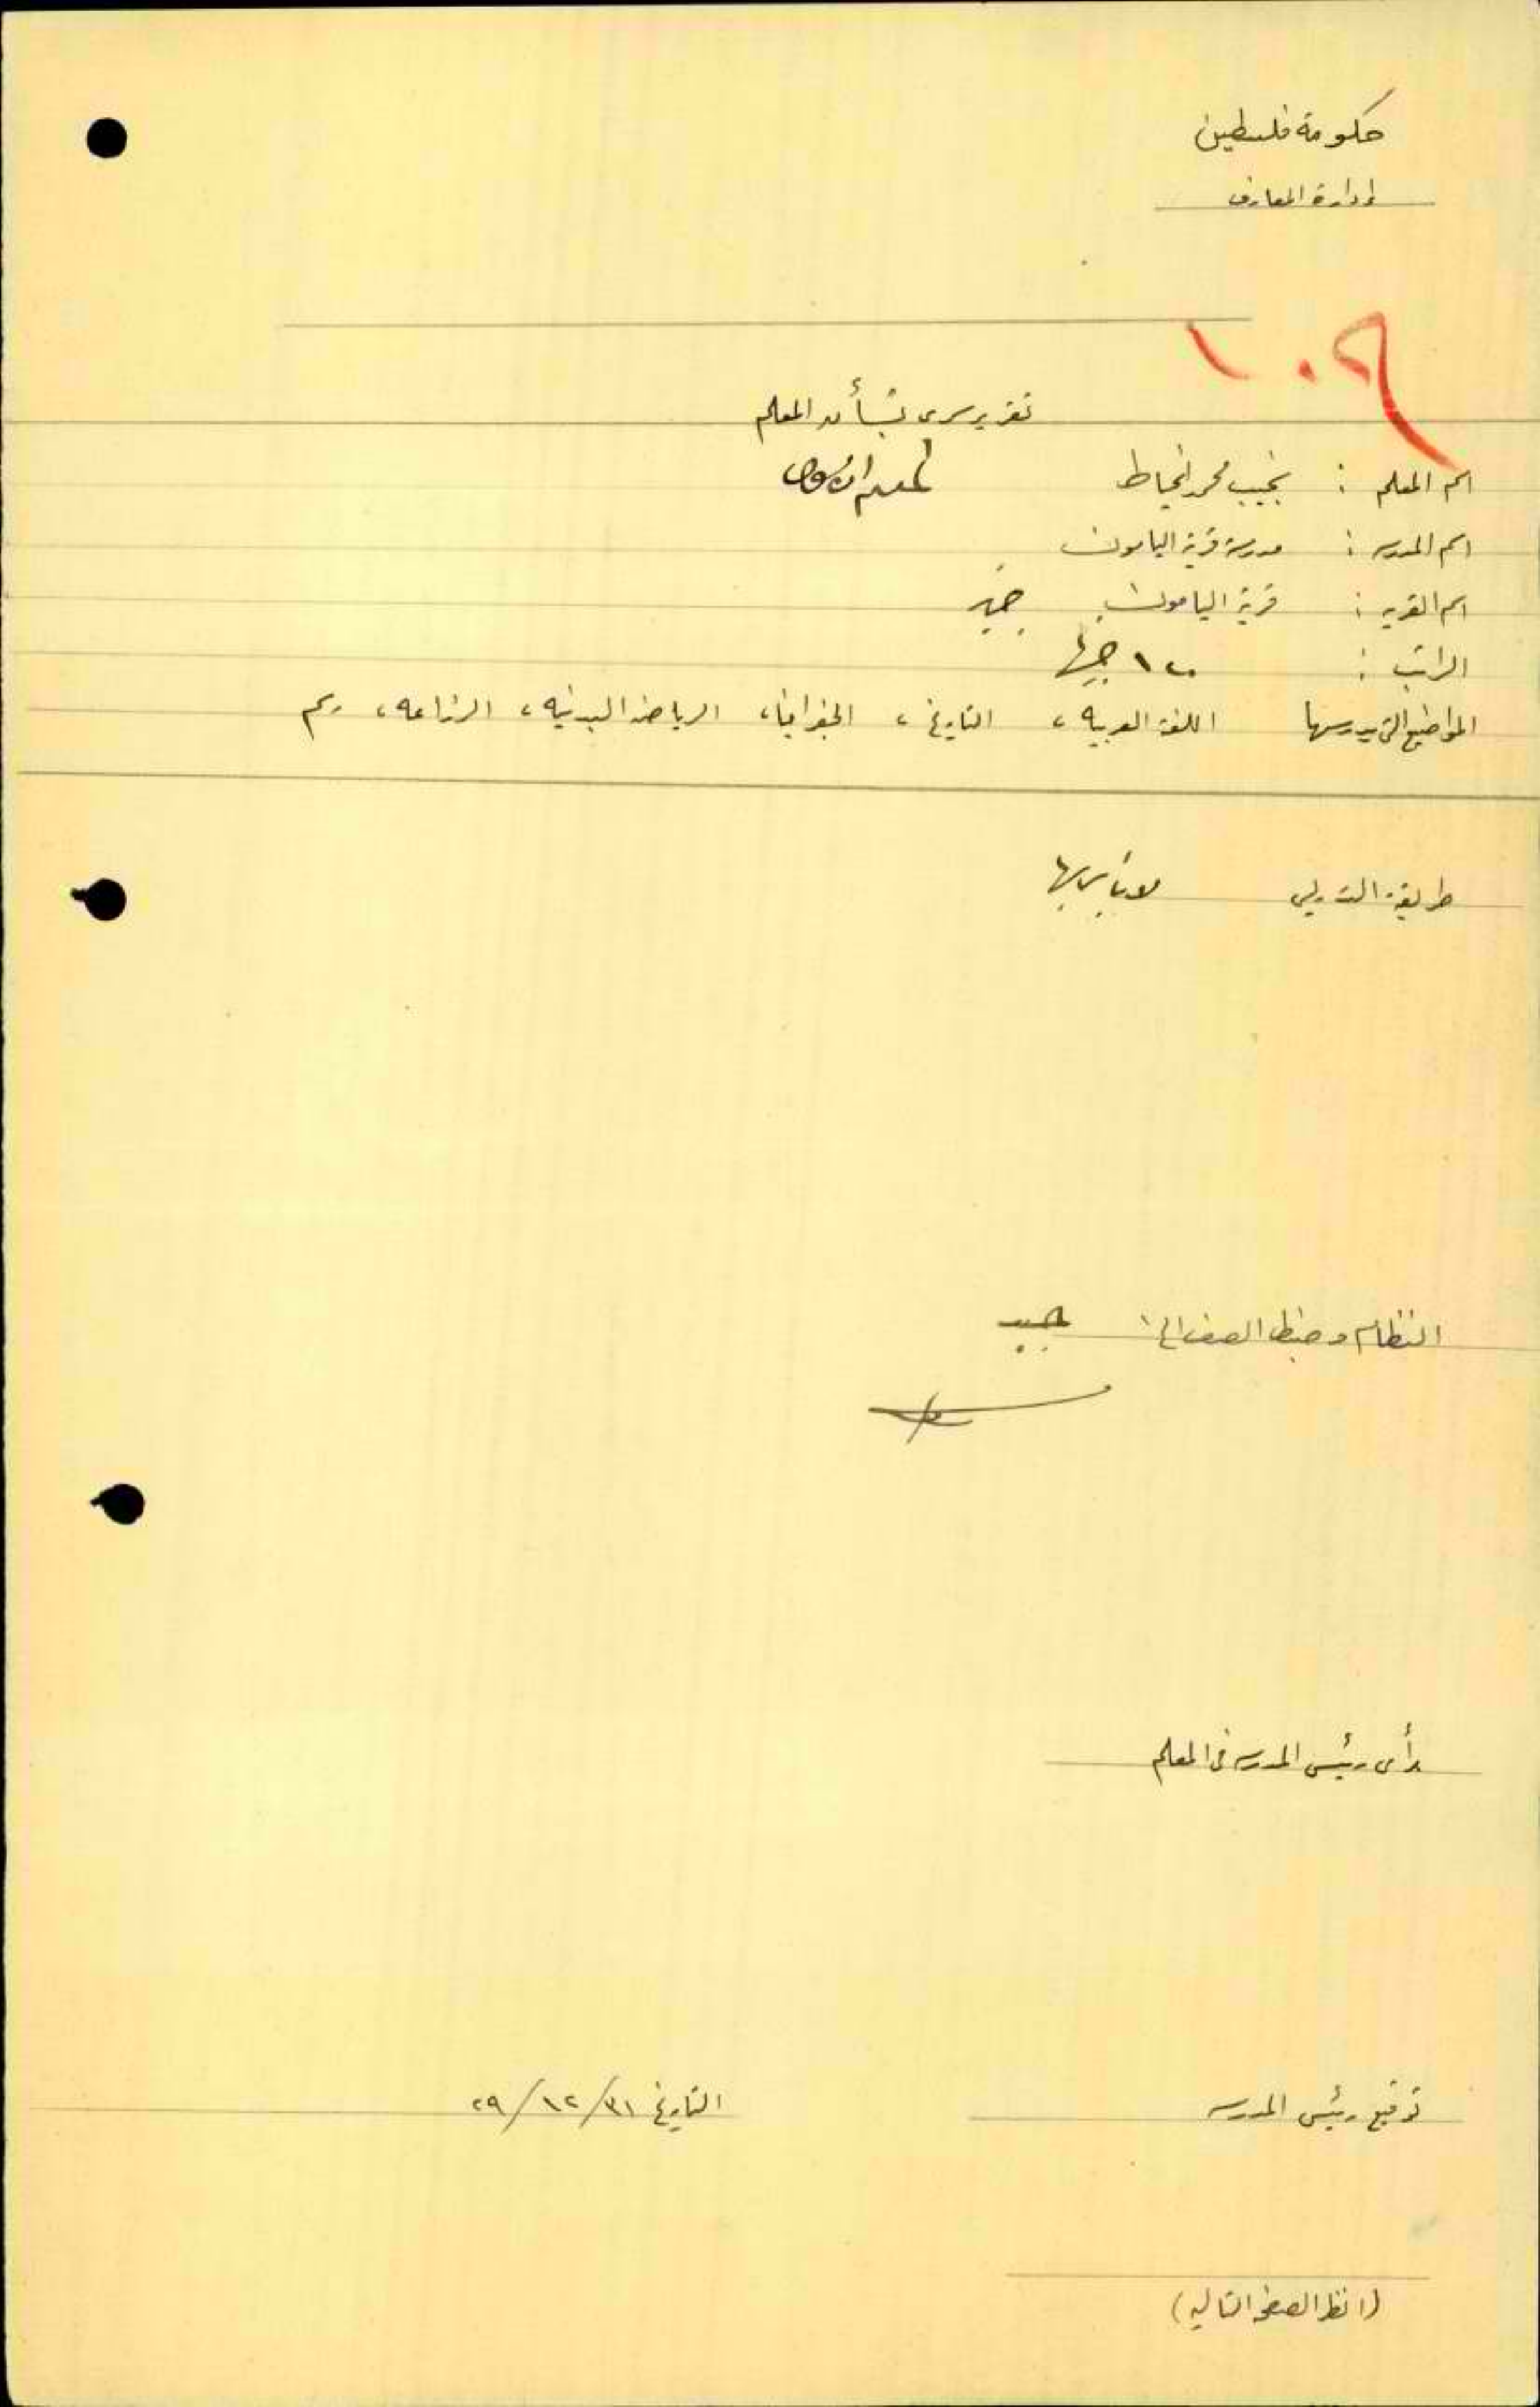 حكومة فلسطين
إدارة المعارف
١٠٩
تقرير سرى بشأن المعلم
اسم المعلم : نجيب محمد الخياط
اسم المدرسه : مدرسة قرية اليامون
اسم القريه : قرية اليامون جنين
الراتب : جنيها
المواضيع التى يدرسها اللغة العربيه ، التاريخ ، الجغرافيا ، الرياضة البدنيه ، الزراعه ، رسم
طريقة التدريس لا بأس بها
النظام وضبط الصف الخ جيد
رأى رئيس المدرسه فى المعلم
توقيع رئيس المدرسه
التاريخ ٣١/١٢/٢٩
(انظر الصفحة التاليه)